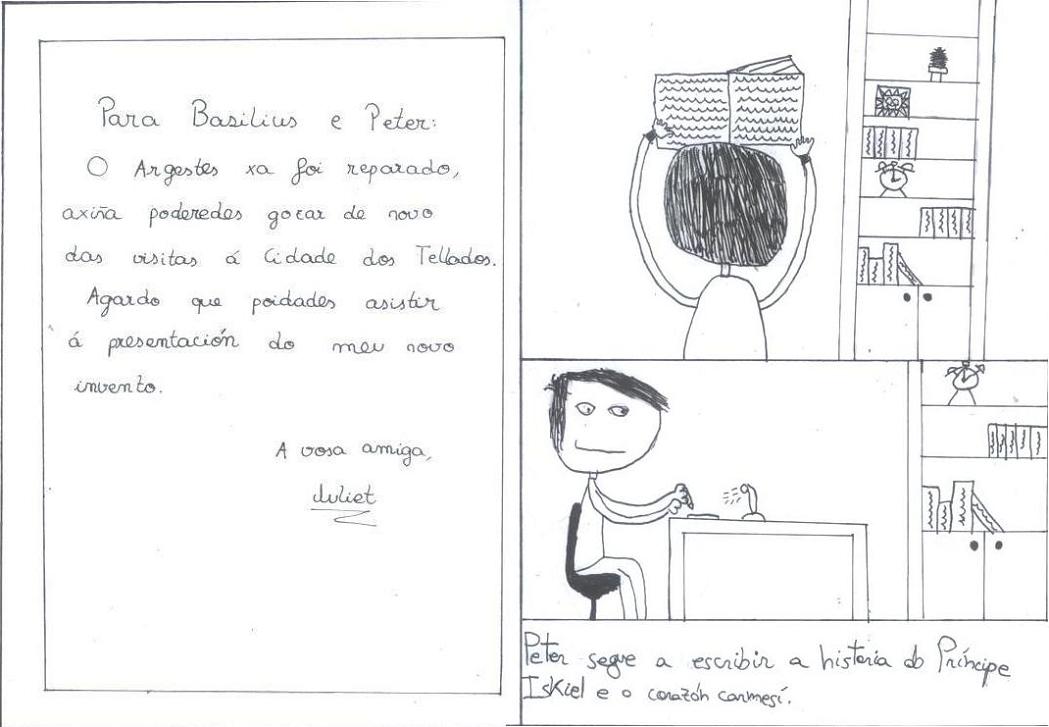 Para Basilius e Peter:
O Argestes xa foi reparado,
axiña poderedes gozar de novo
das visitas á Cidade dos Tellados.
Agardo que poidades asistir
á presentación do meu novo
invento.
A vosa amiga,
Juliet
Peter segue a escribir a historia do Príncipe
Iskiel e o corazón carmesí.